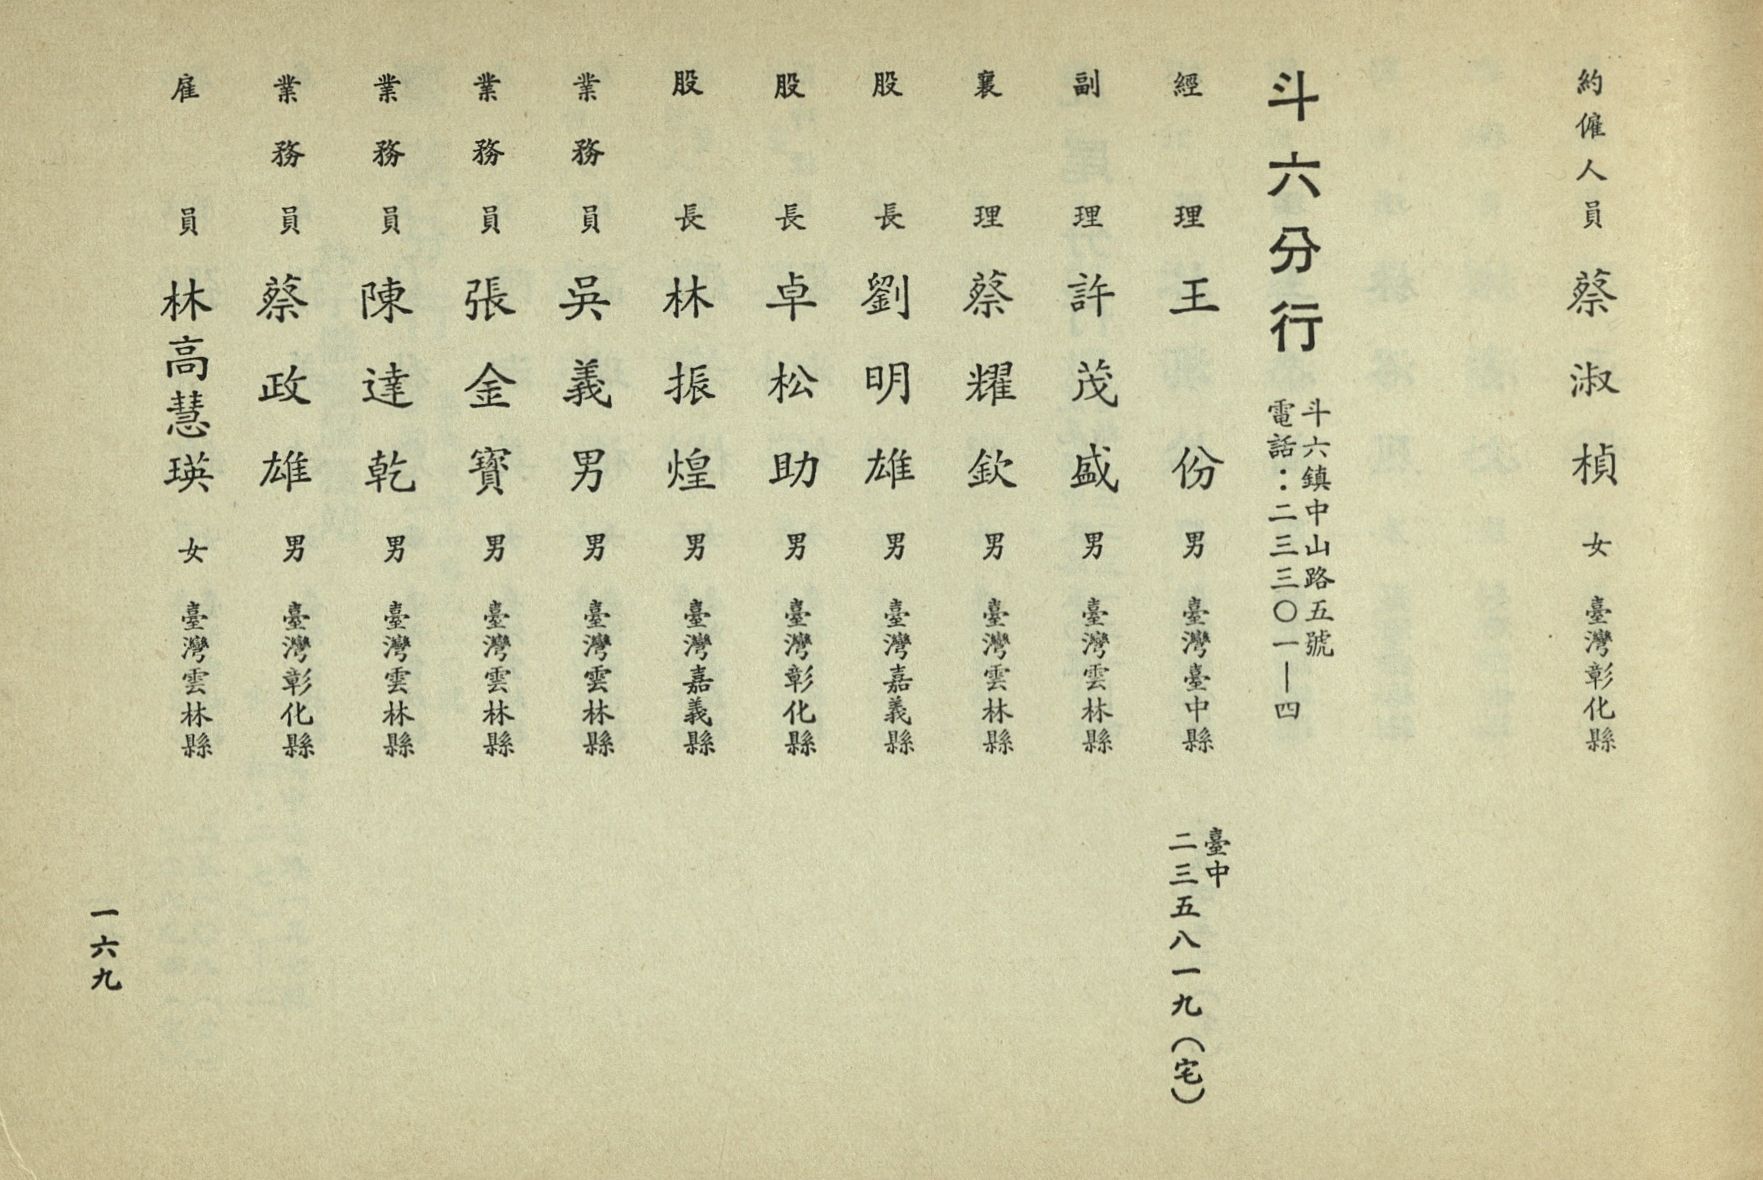 約僱人員 蔡淑楨 女 臺灣彰化縣
斗六分行
斗六鎮中山路五號
電話：二三三〇一—四
經理 王份 男 臺灣臺中縣 臺中
二三五八一九（宅）
副理 許茂盛 男 臺灣雲林縣
襄理 蔡耀欽 男 臺灣雲林縣
股長 劉明雄 男 臺灣嘉義縣
股長 卓松助 男 臺灣彰化縣
股長 林振煌 男 臺灣嘉義縣
業務員 吳義男 男 臺灣雲林縣
業務員 張金寶 男 臺灣雲林縣
業務員 陳達乾 男 臺灣雲林縣
業務員 蔡政雄 男 臺灣彰化縣
雇員 林高慧瑛 女 臺灣雲林縣
一六九